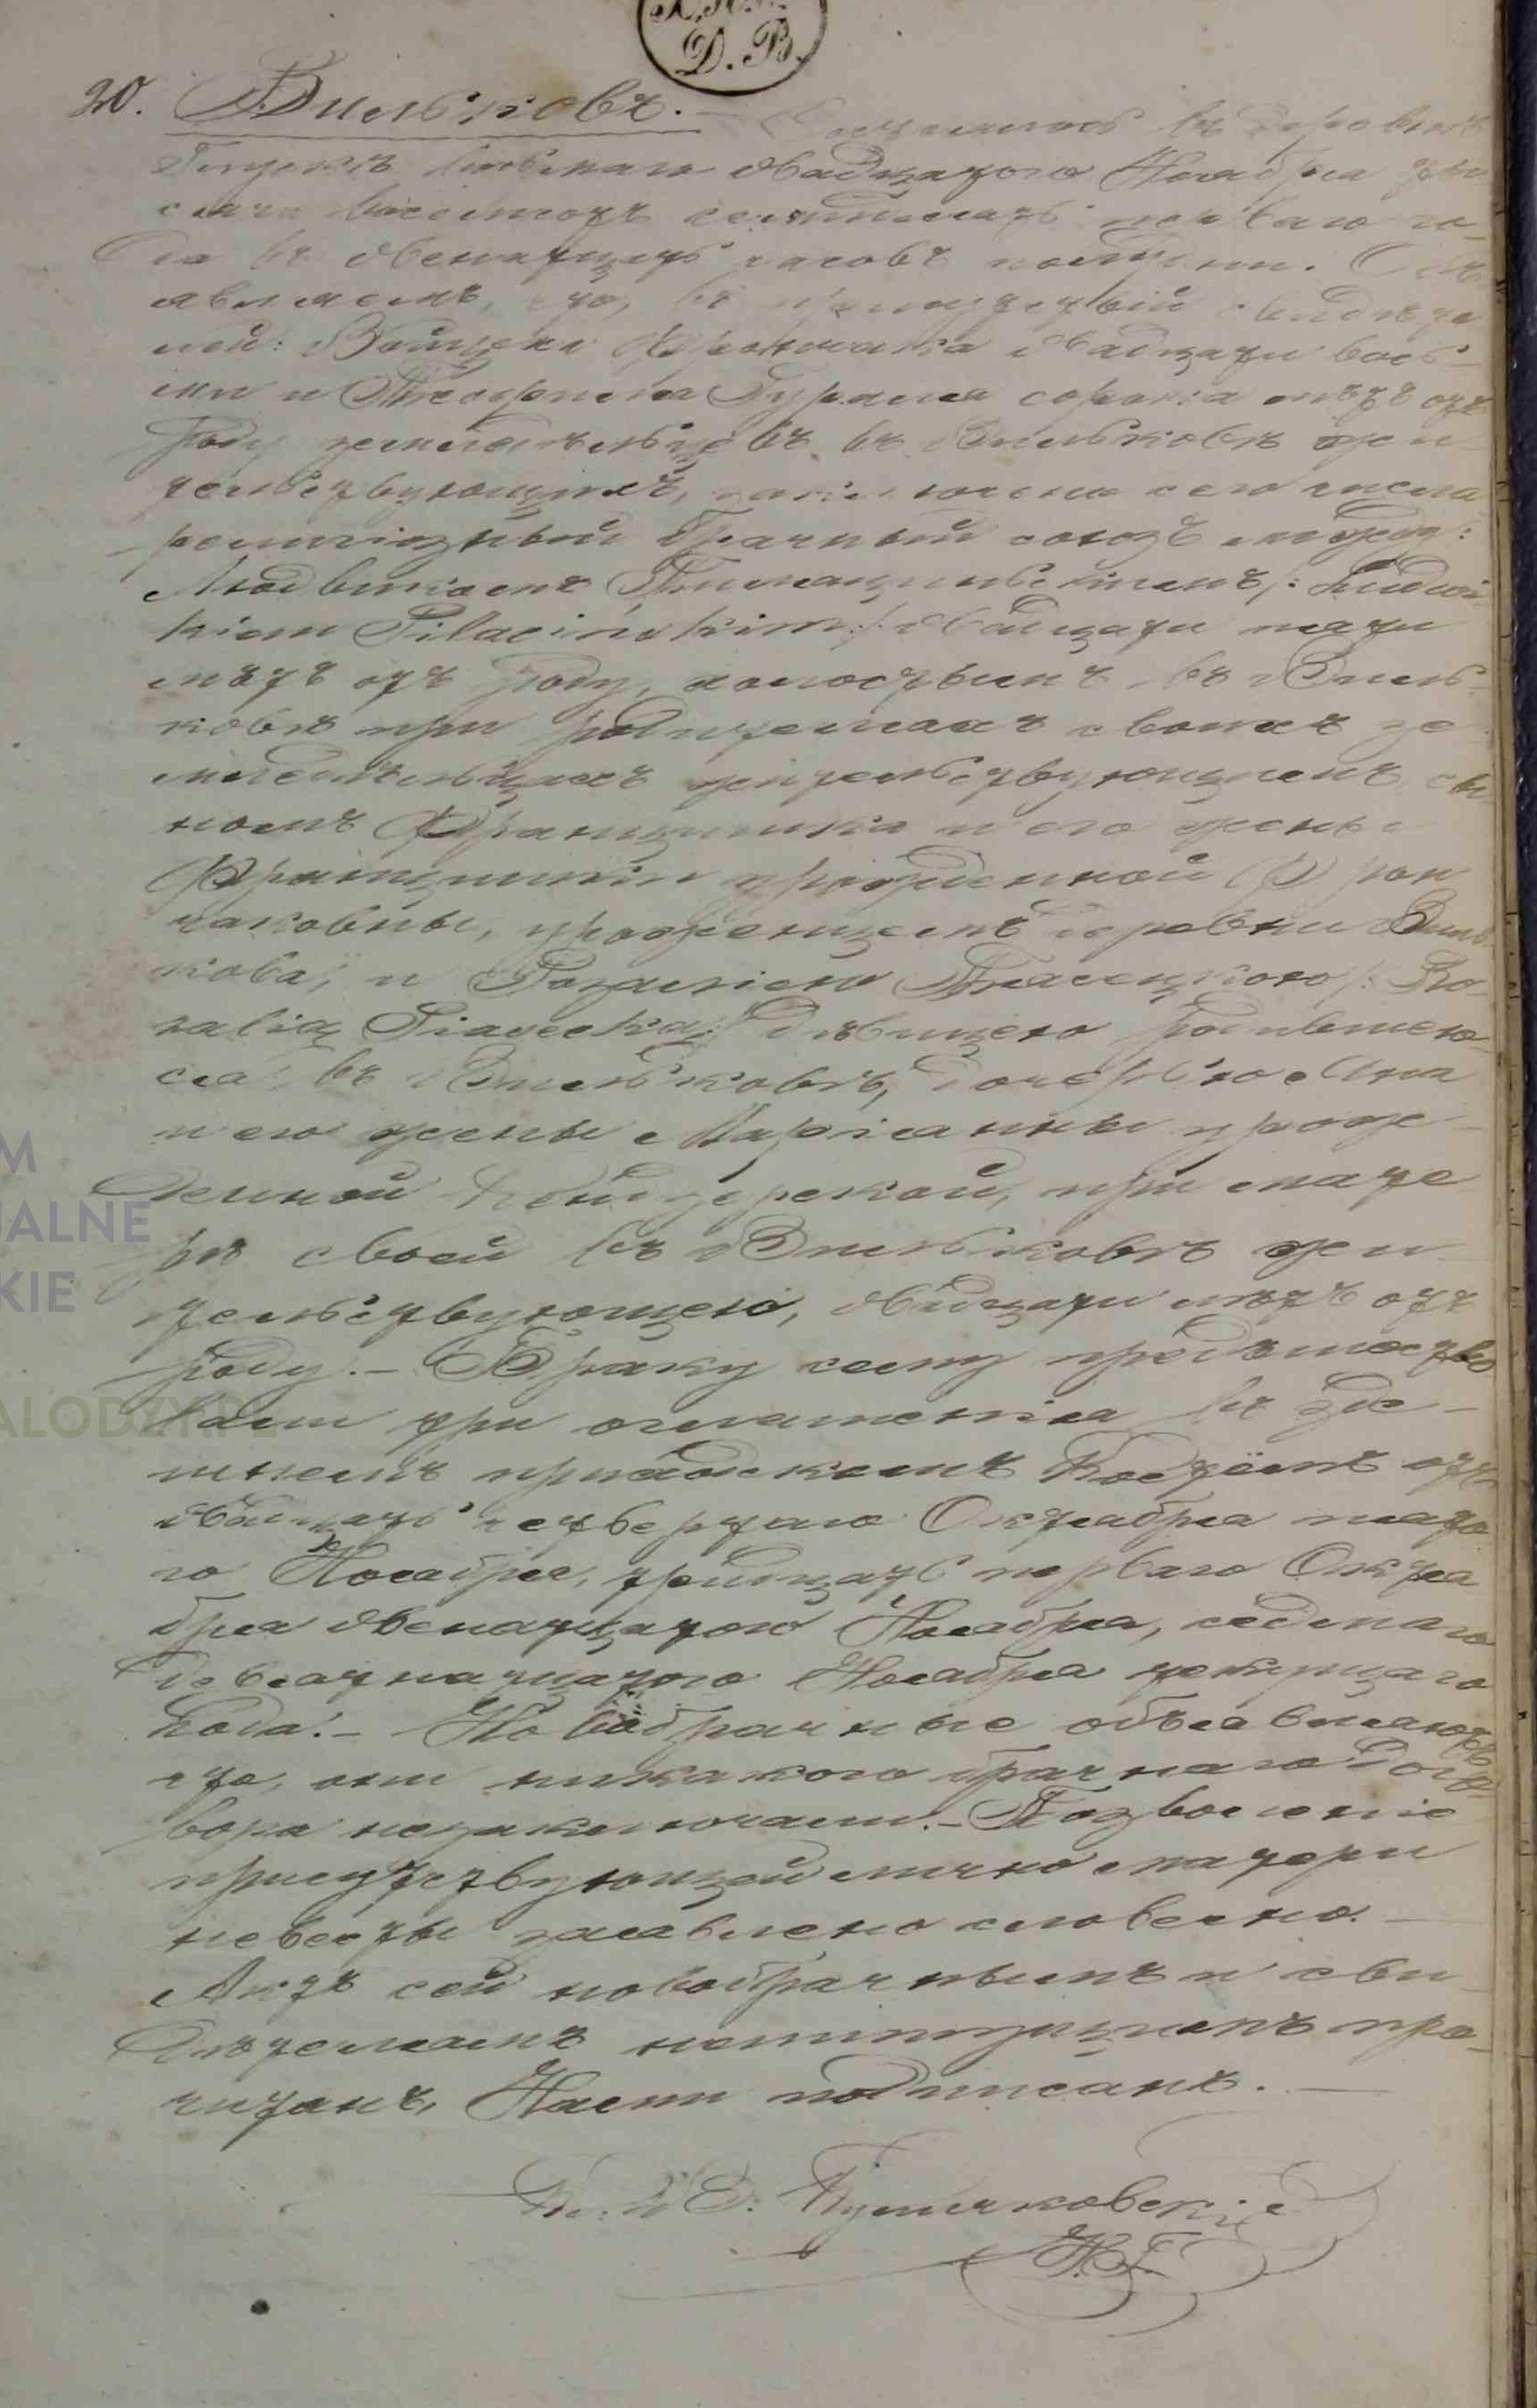 Д. В.
20. Вильковъ. Состоялось въ деревнѣ
двадцатого Ноября ты
сяча восемсотъ семдесятъ перваго го-
да въ двенатцать часовъ пополудни. Объ
являемъ, что, въ присутствіи свидѣте
лей: Войцеха Фронтчака двадцати вось-
ми и сорока лѣтъ отъ
роду земледѣльцевъ въ Вильковѣ жи
тельствующихъ, заключенъ сего числа
религіозный брачный союзъ между:
Людвикомъ Пилацинскимъ /: Ludwi-
kiem Pilacińskim :/ двадцати пяти
лѣтъ отъ роду, холостымъ въ Виль-
ковѣ при родителяхъ своихъ зе
мледѣльцахъ жительствующимъ, сы
номъ Францишка и его жены
Францишки урожденной Фрон
чаковны, уроженцемъ деревни Виль-
кова, и Розаліею Пясецкою /: Ro-
zalią Piasecką :/ дѣвицею родившею-
ся въ Вильковѣ, дочерью Яна
и его жены Маріанны урож-
денной при мате
рѣ своей въ Вильковѣ жи
тельствующею, двадцати лѣтъ отъ
роду. – Браку сему предшество
вали три оглашенія въ здѣ-
шнемъ приходскомъ Костёлѣ отъ
двадцать четвертаго Октября пято
го Ноября, тридцать перваго Октя
бря двенатцатого Ноября, седмаго
девятнатцатого Ноября текущаго
года. – Новобрачные объявляютъ
что, они никакого брачнаго дого
вора незаключали. – Позволеніе
присутствующей лично матери
невесты заявлено словесно. –
Актъ сей новобрачнымъ и сви-
дѣтелямъ неграмотнымъ про-
читанъ, Нами подписанъ. –